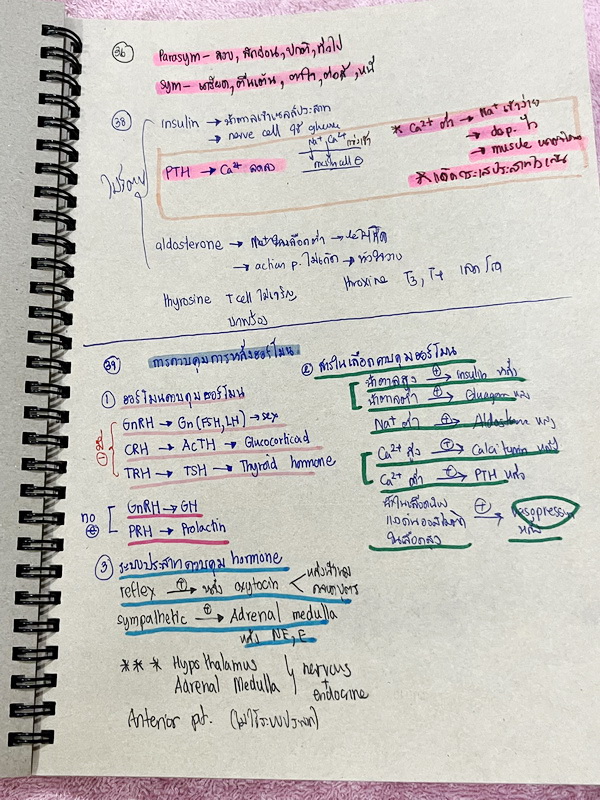 36
Parasym - สงบ, พักผ่อน, ปกติ, ทั่วไป
Sym - เครียด, ตื่นเต้น, ตกใจ, ต่อสู้, หนี
38
insulin → น้ำตาลเข้าเซลล์ประสาท
→ nerve cell ใช้ glucose
PTH → Ca²⁺ ลดลง
Na⁺, Ca²⁺
* Ca²⁺ ต่ำ → Na⁺ เข้าง่าย
→ dep. ไว
→ muscle
aldosterone → Na⁺ในเลือดต่ำ →
→ action p. ไม่เกิด →
thyrosine T cell ไม่เจริญ
บกพร่อง
throxine T3, T4
39 การควบคุมการหลั่งฮอร์โมน
① ฮอร์โมนควบคุมฮอร์โมน
GnRH → Gn (FSH, LH) → sex
CRH → ACTH → Glucocorticoid
TRH → TSH → Thyroid hormone
no
GnRH → GH
PRH → Prolactin
② สารในเลือดควบคุมฮอร์โมน
น้ำตาลสูง ⊕→ insulin หลั่ง
น้ำตาลต่ำ ⊕→ Glucagon หลั่ง
Na⁺ ต่ำ ⊕→ Aldosterone หลั่ง
Ca²⁺ สูง ⊕→ Calcitonin หลั่ง
Ca²⁺ ต่ำ ⊕→ PTH หลั่ง
น้ำในเลือดน้อย
แรงดันออสโมติก
ในเลือดสูง
⊕→ Vasopressin
หลั่ง
③ ระบบประสาทควบคุม hormone
reflex ⊕→ หลั่ง oxytocin < หลั่งน้ำนม
คลอดบุตร
sympathetic ⊕→ Adrenal medulla
หลั่ง NE, E
*** Hypothalamus
Adrenal Medulla
nervous
+
endocrine
Anterior pit. (ไม่ใช่ระบบประสาท)